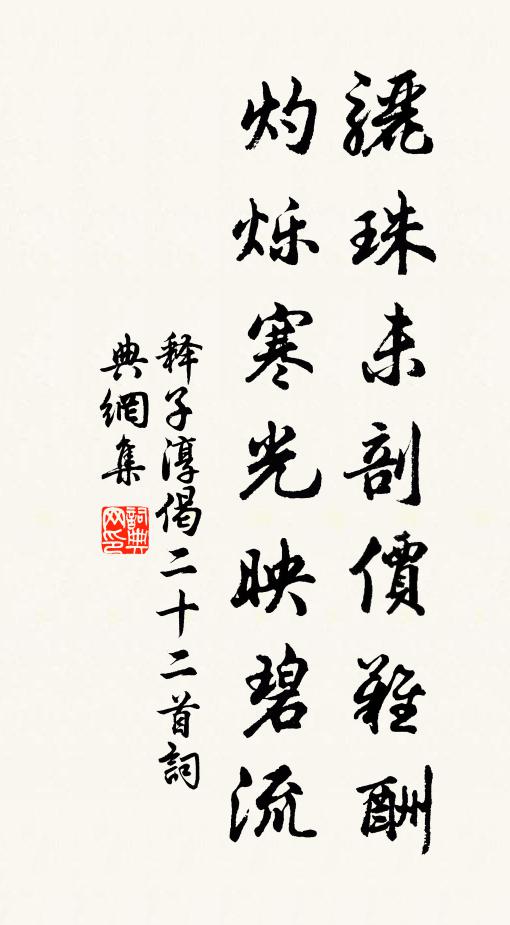 骊珠未剖價難酬
灼烁寒光映碧流
释子淳偈二十二首詞
典網集
詞典
网印